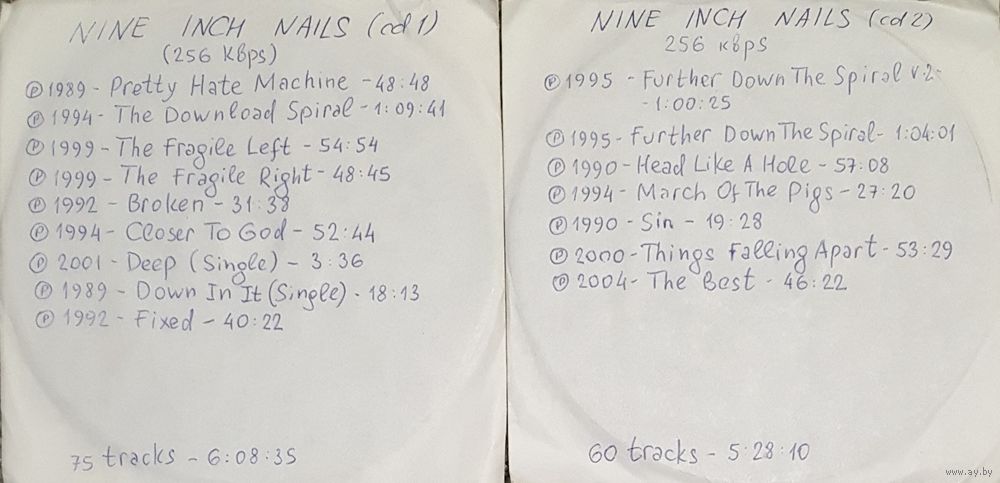 NINE INCH NAILS (cd 1)
(256 Kbps)
℗ 1989 - Pretty Hate Machine - 48:48
℗ 1994 - The Download Spiral - 1:09:41
℗ 1999 - The Fragile Left - 54:54
℗ 1999 - The Fragile Right - 48:45
℗ 1992 - Broken - 31:38
℗ 1994 - Closer To God - 52:44
℗ 2001 - Deep (Single) - 3:36
℗ 1989 - Down In It (Single) - 18:13
℗ 1992 - Fixed - 40:22
75 tracks - 6:08:35
NINE INCH NAILS (cd 2)
256 KBPS
℗ 1995 - Further Down The Spiral v.2-
- 1:00:25
℗ 1995 - Further Down The Spiral - 1:04:01
℗ 1990 - Head Like A Hole - 57:08
℗ 1994 - March Of The Pigs - 27:20
℗ 1990 - Sin - 19:28
℗ 2000 - Things Falling Apart - 53:29
℗ 2004 - The Best - 46:22
60 tracks - 5:28:10
www.ay.by